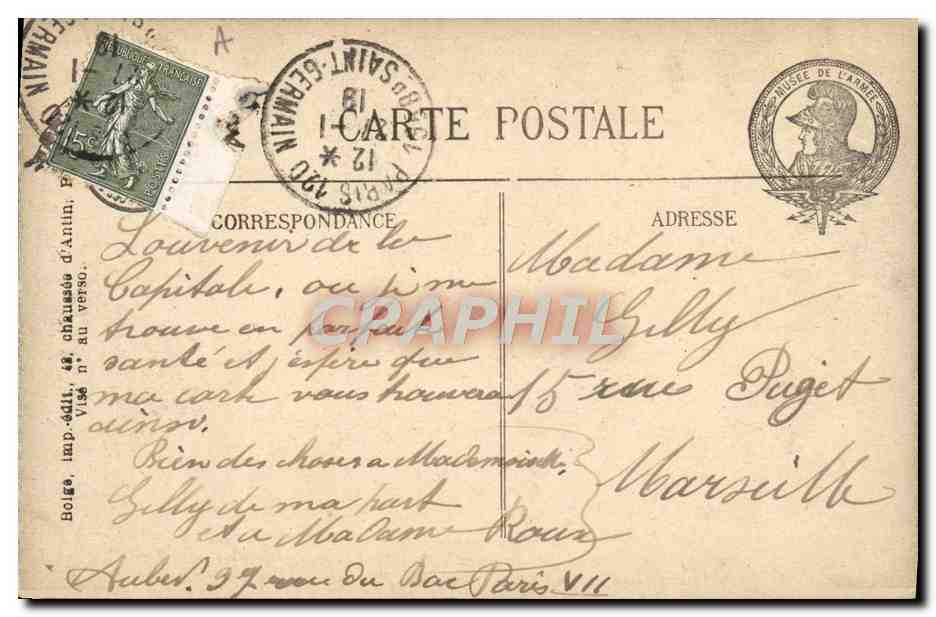 A
REPUBLIQUE FRANÇAISE
15c
POSTES
PARIS 120
Bd SAINT-GERMAIN
12
19
CARTE POSTALE
MUSÉE DE L'ARMÉE
CORRESPONDANCE
ADRESSE
Souvenir de la
Capitale, ou je me
trouve en parfaite
santé et j'espire que
ma carte vous trouvera
ainsi.
Bien des choses a Mademoiselle
Gilly de ma part
Madame Roux
Auber. 97 rue du Bac Paris VII
Madame
Gilly
15 rue Puget
Marseille
Bolgé, imp.-édit., chaussée d'Antin,
Visé n° au verso.
CPAPHIL